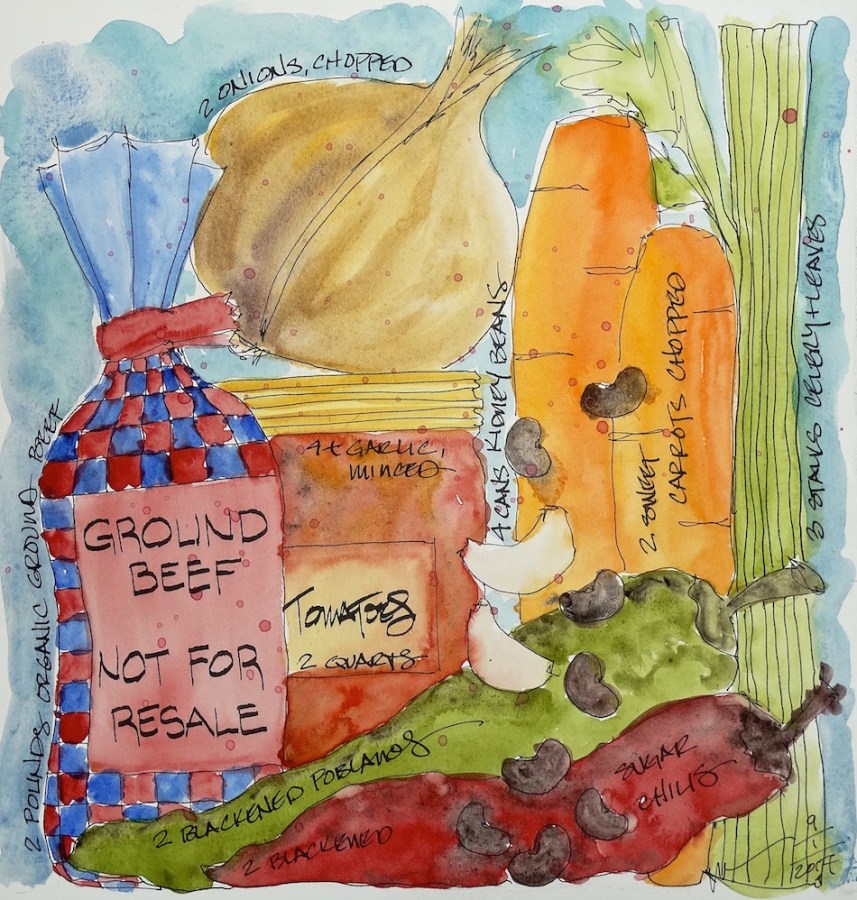 2 ONIONS, CHOPPED
2 POUNDS ORGANIC GROUND BEEF
GROUND
BEEF
NOT FOR
RESALE
4+ GARLIC,
MINCED
TOMATOES
2 QUARTS
4 CANS KIDNEY BEANS
2 SWEET
CARROTS CHOPPED
3 STALKS CELERY + LEAVES
2 BLACKENED POBLANOS
2 BLACKENED
SUGAR
CHILIS
9